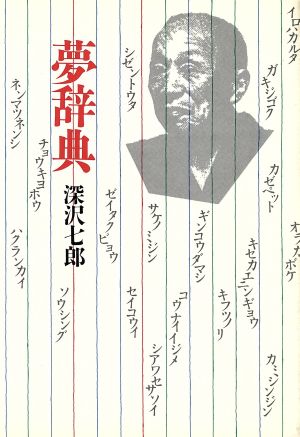 イロハガルタ
ガキジゴク
カゼミット
オラガボケ
シゼントウタ
キセカエニンギョウ
カミシンジン
ギンコウダマシ
キフヅノリ
サケノミジン
コウナイイジメ
シアワセサソイ
夢辞典
深沢七郎
ゼイタクビョウ
セイコウイ
チョウキヨホウ
ソウシング
ネンマツネンシ
ハクランカイ